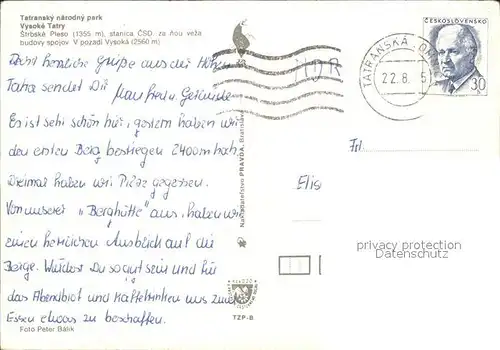 Tatranský národný park
Vysoké Tatry
Štrbské Pleso (1355 m), stanica ČSD, za ňou veža
budovy spojov. V pozadí Vysoká (2560 m)
ČESKOSLOVENSKO
30
TATRANSKÁ
22.8.
Recht herzliche Grüße aus der Hohen
Tatra sendet Dir Manfred u. Gerlinde
Es ist sehr schön hier, gestern haben wir
den ersten Berg bestiegen 2400m hoch.
Dreimal haben wir Pilze gegessen.
Von unserer „Berghütte" aus, haben wir
einen herrlichen Ausblick auf die
Berge. Würdest Du so gut sein und für
das Abendbrot und Kaffeetrinken uns zum
Essen etwas zu beschaffen.
Frl.
Elis
Nakladateľstvo PRAVDA, Bratislava
privacy protection
Datenschutz
TZP-B
Foto Peter Bálik